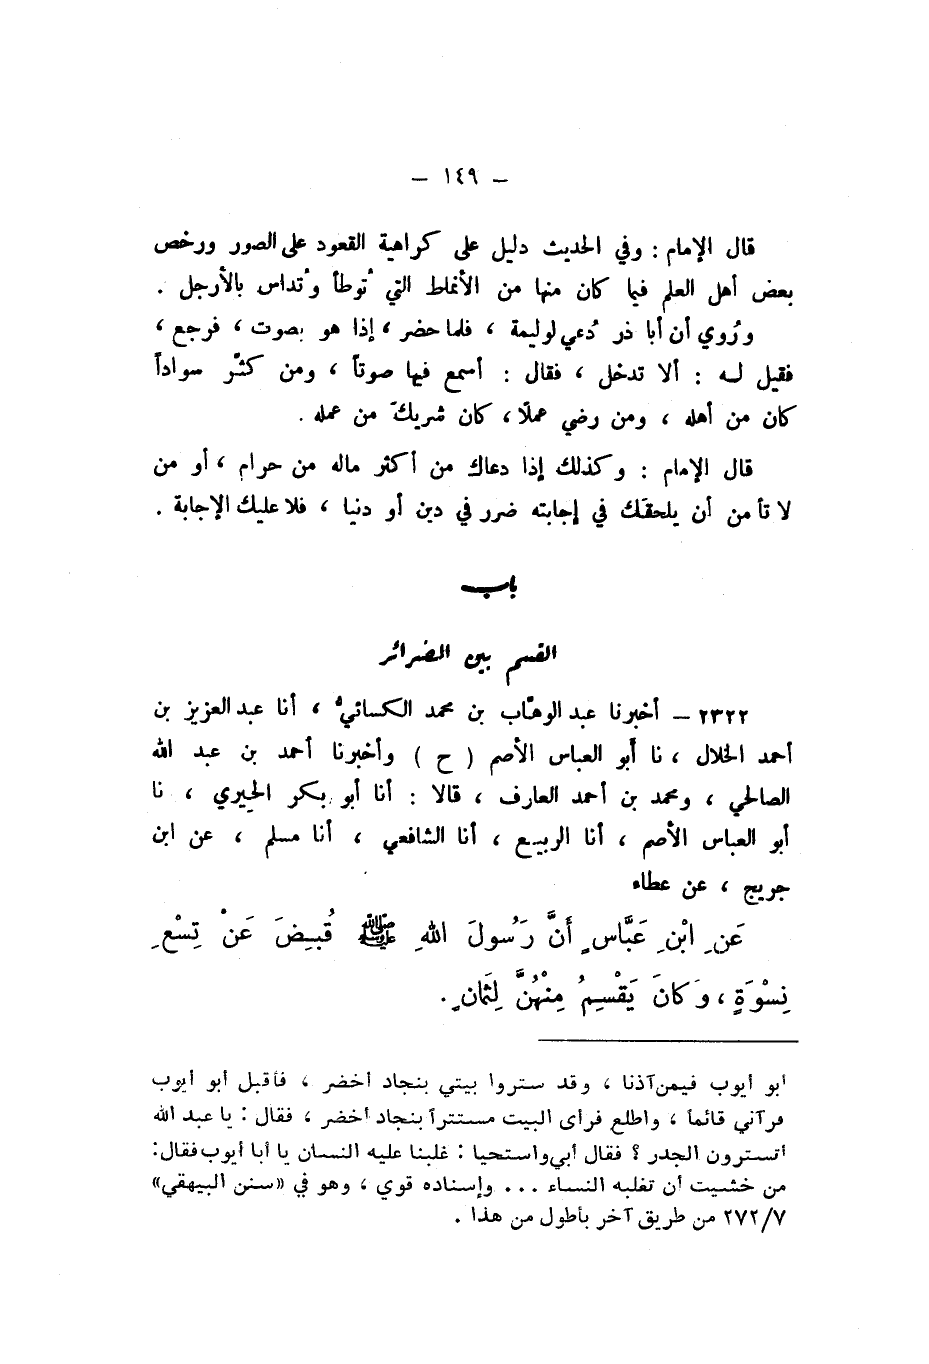 – ١٤٩ –
قال الإمام : وفي الحديث دليل على كراهية القعود على الصور ورخص
بعض أهل العلم فيما كان منها من الأنماط التي تُوطأ وتُداس بالأرجل .
ورُوي أن أبا ذر دُعي لوليمة ، فلما حضر ، إذا هو بصوت ، فرجع ،
فقيل له : ألا تدخل ، فقال : أسمع فيها صوتاً ، ومن كثَّر سواداً
كان من أهله ، ومن رضي عملًا ، كان شريكَ من عمله .
قال الإمام : وكذلك إذا دعاك من أكثر ماله من حرام ، أو من
لا تأمن أن يلحقَك في إجابته ضرر في دين أو دنيا ، فلا عليك الإجابة .
باب
القسم بين الضرائر
٢٣٢٢ – أخبرنا عبد الوهَّاب بن محمد الكسائيُّ ، أنا عبد العزيز بن
أحمد الخلال ، نا أبو العباس الأصم ( ح ) وأخبرنا أحمد بن عبد الله
الصالحي ، ومحمد بن أحمد العارف ، قالا : أنا أبو بكر الحِيري ، نا
أبو العباس الأصم ، أنا الربيع ، أنا الشافعي ، أنا مسلم ، عن ابن
جريج ، عن عطاء
عَنِ ابْنِ عَبَّاسٍ أَنَّ رَسُولَ اللهِ ﷺ قُبِضَ عَنْ تِسْعِ
نِسْوَةٍ ، وَكَانَ يَقْسِمُ مِنْهُنَّ لِثَمَانٍ .
أبو أيوب فيمن آذنا ، وقد ستروا بيتي بنجاد أخضر ، فأقبل أبو أيوب
فرآني قائماً ، واطلع فرأى البيت مستتراً بنجاد أخضر ، فقال : يا عبد الله
أتسترون الجدر ؟ فقال أبي واستحيا : غلبنا عليه النسان يا أبا أيوب فقال:
من خشيت أن تغلبه النساء ... وإسناده قوي ، وهو في «سنن البيهقي»
٢٧٢/٧ من طريق آخر بأطول من هذا .